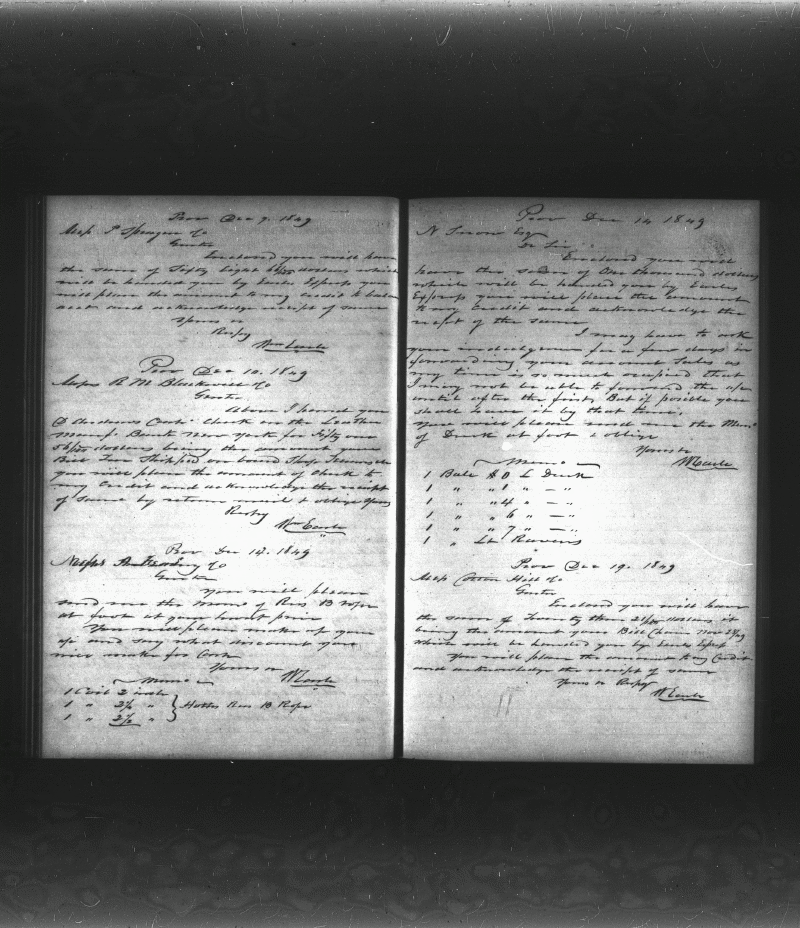 Prov Dec 9. 1849
Mess P Sprague Co
Gents
Enclosed you will have
the sum of Sixty Eight dollars which
will be handed you by Earls Express you
will place the amount to my credit to balance
acct and acknowledge receipt of same
Yours
Respy
Wm Earle
Prov Dec 10. 1849
Mess R M Co
Gents
Above I hand you
Check on the Leather
Manf. Bank New York for Fifty one
56/100 dollars being the amount your
Bill shipped on board
you will place the amount of Check to
my credit and acknowledge the receipt
of same by return mail & oblige Yours
Respy
Wm Earle
Prov Dec 14. 1849
Co
Gents
You will please
send me the mems of Rus B rope
at foot at your lowest price
You will please make up your
and say what discount you
will make for Cash
Yours
W Earle
Memo
1 Coil 2 inch
1 " 2 1/4 "
1 " 2 1/2 "
Rus B Rope
Prov Dec 14 1849
N Snow Esq
Dr Sir
Enclosed you will
have the sum of One thousand dollars
which will be handed you by Earles
Express you will place the amount
to my credit and acknowledge the
receipt of the same
I may have to ask
your indulgence for a few days in
forwarding your account Sales as
my time is so much occupied that
I may not be able to forward the
until after the first, But if posible you
shall have it by that time.
You will please send me the Mem.
of Duck at foot & oblige
Yours
W Earle
Memo
1 Bale # 0 L Duck
1 " " 1 " — "
1 " " 4 " — "
1 " " 6 " — "
1 " " 7 " — "
1 " Lt Ravens
Prov Dec 19. 1849
Mess Hill Co
Gents
Enclosed you will have
the sum of Twenty three dollars it
being the amount your Bill Chain Nov
which will be handed you by Earls Exps
You will place the amount to my Credit
and acknowledge the receipt of same
Yours Respy
W Earle